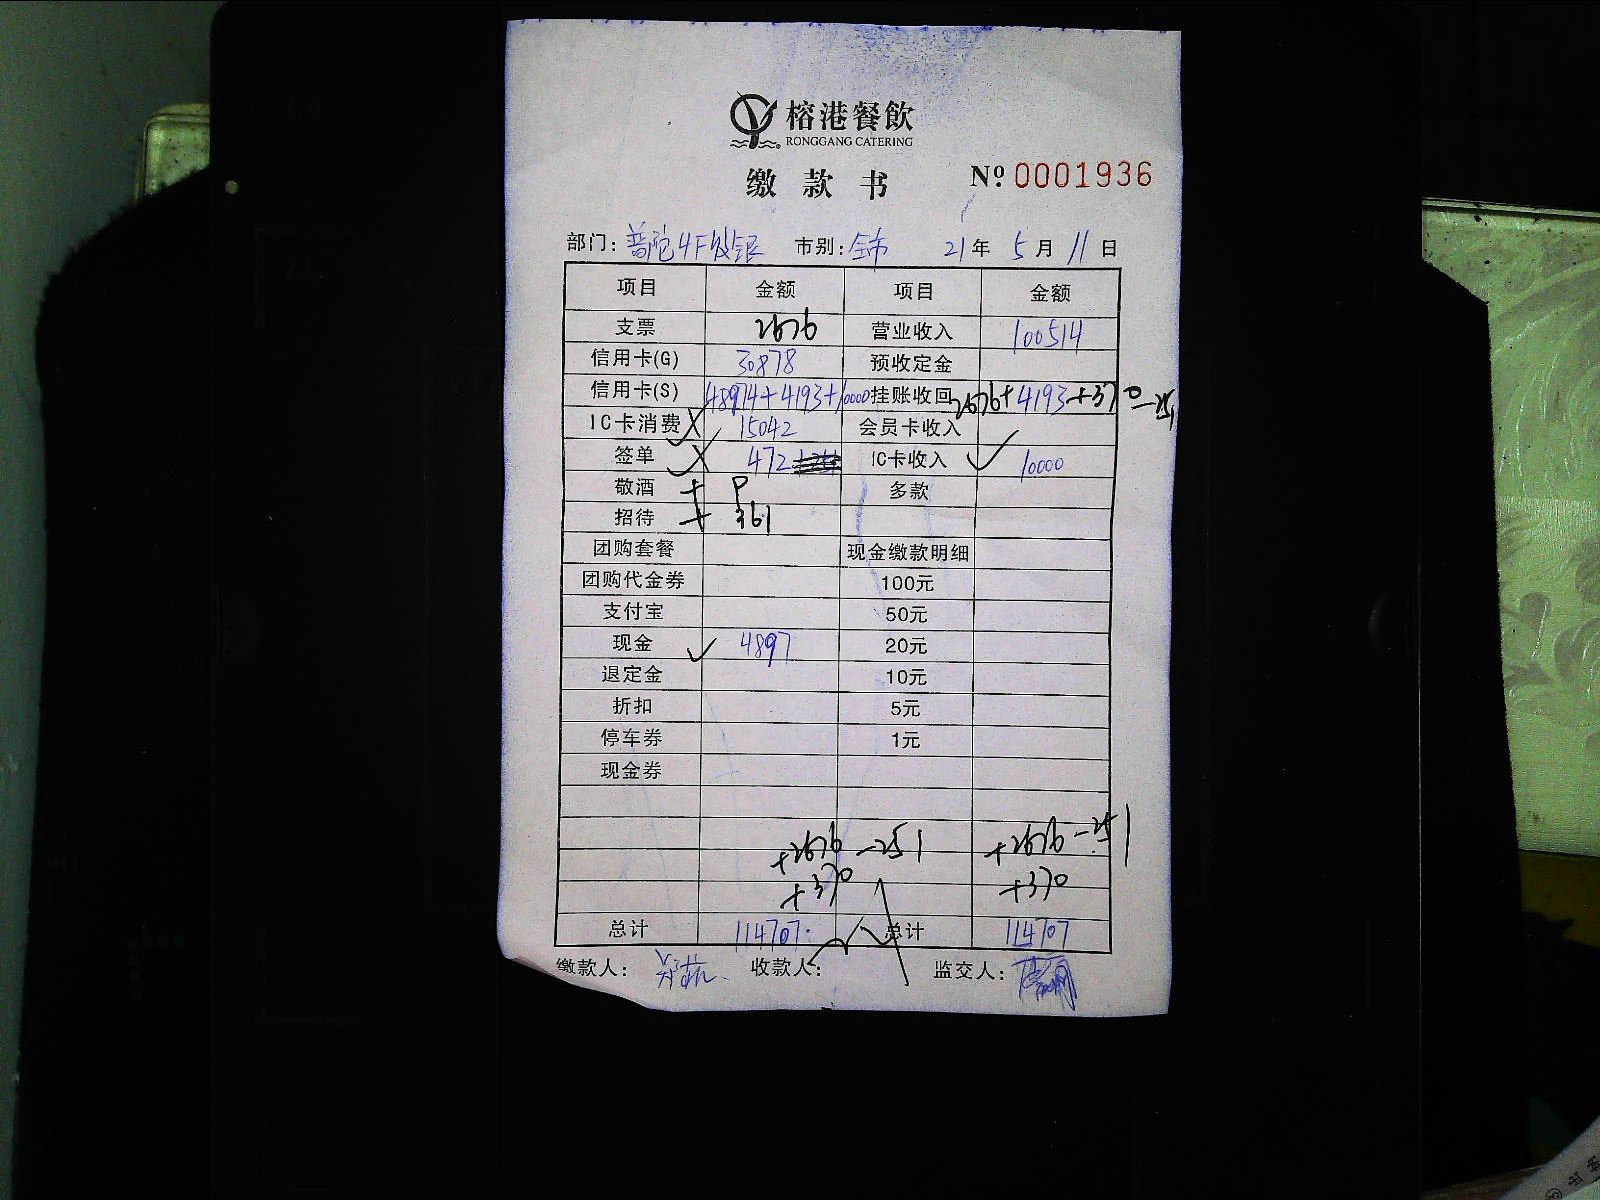 榕港餐飲
RONGGANG CATERING
缴款书 Nº 0001936
部门: 普陀4F收银 市别: 全市 21年 5月 11日
项目 金额 项目 金额
支票 2676 营业收入 100514
信用卡(G) 30878 预收定金
信用卡(S) 48974+4193+10000 挂账收回 2676+4193+370-251
IC卡消费 15042 会员卡收入
签单 472 IC卡收入 10000
敬酒 多款
招待 361
团购套餐 现金缴款明细
团购代金券 100元
支付宝 50元
现金 4897 20元
退定金 10元
折扣 5元
停车券 1元
现金券
+2676 -251 +2676 -251
+370 +370
总计 114707 总计 114707
缴款人: 收款人: 监交人: